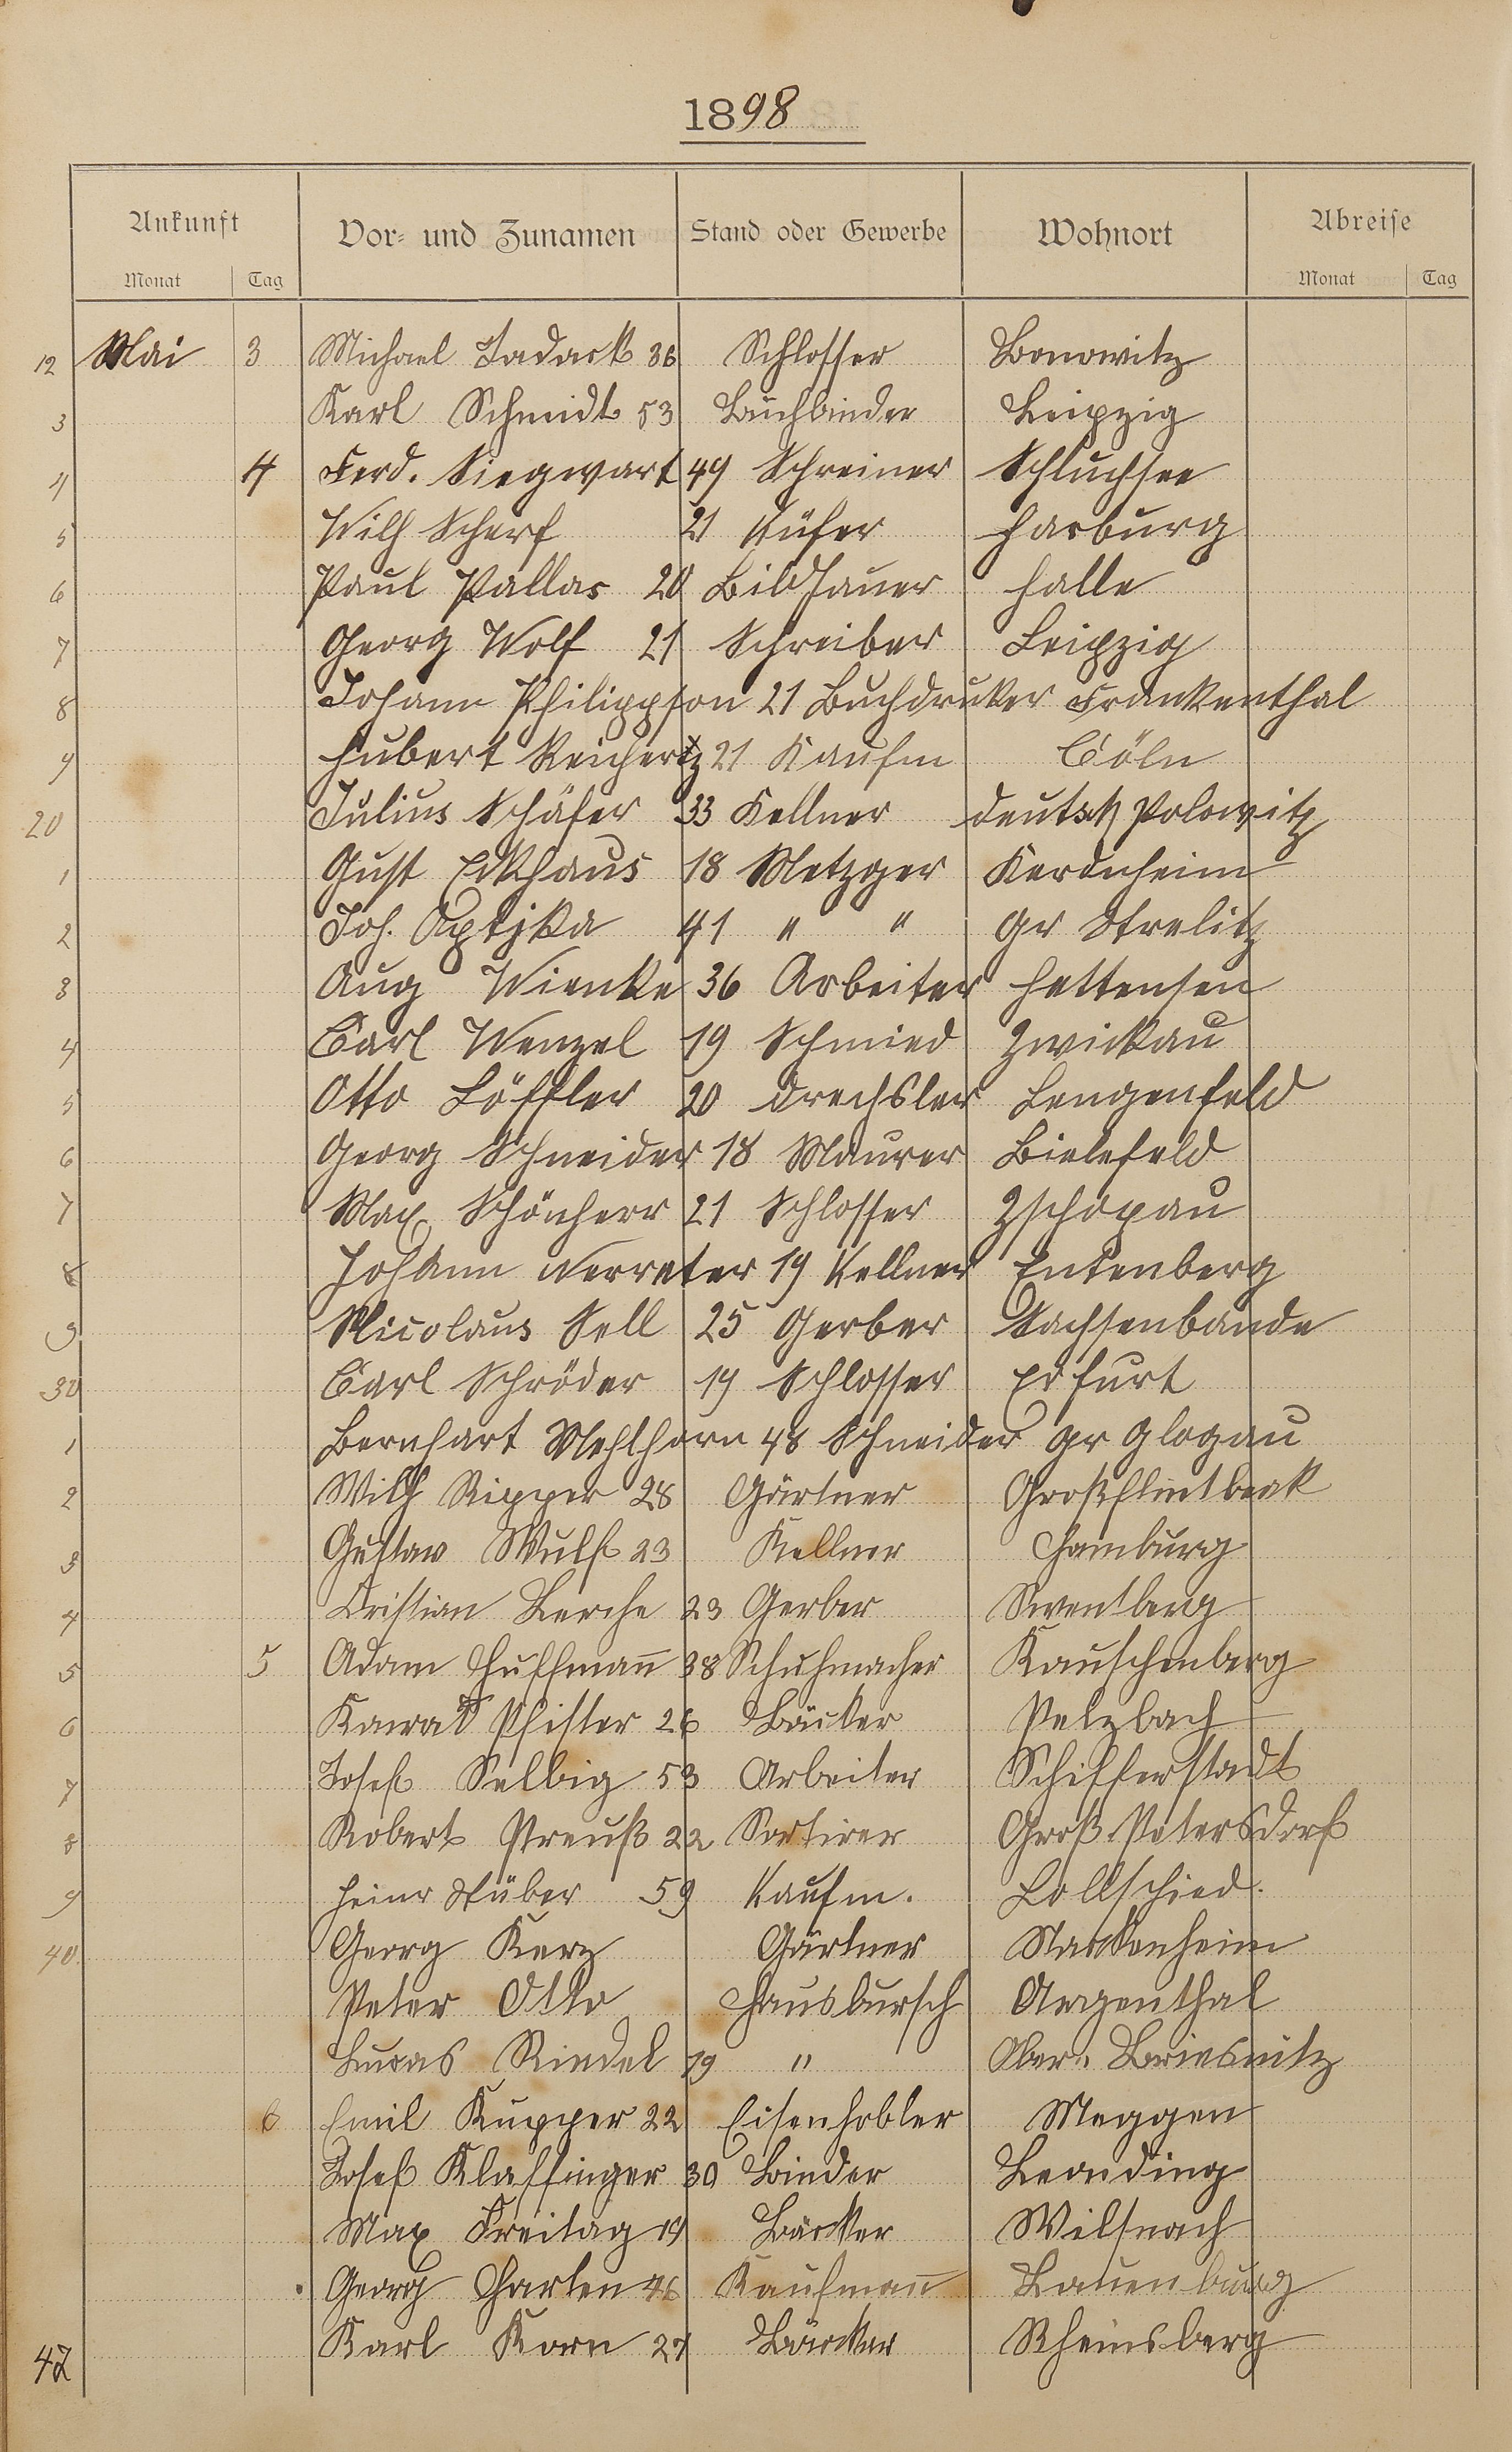 1898
Ankunft Vor- und Zunamen Stand oder Gewerbe Wohnort Abreise
Monat Tag Monat Tag
12 Mai 3 Michael Tadack 36 Schlosser Bonowitz
3 Karl Schmidt 53 Buchbinder Leipzig
4 4 Ferd. Siegwart 49 Schreiner Schluchsee
5 Wilh Scherf 21 Küfer Harburg
6 Paul Pallas 20 Bildhauer Halle
7 Georg Wolf 21 Schreiber Leipzig
8 Johann Philippson 21 Buchdruker Frankenthal
9 Hubert Reichertz 21 Kaufm Cöln
20 Julius Schäfer 33 Kellner deutsch Polowitz
1 Gust Ekhaus 18 Metzger Kerdnheim
2 Joh. Aptjka 41 " " Gr Strelitz
3 Aug Wienke 36 Arbeiter Hettensen
4 Carl Wenzel 19 Schmied Zwickau
5 Otto Löffler 20 Drechsler Lengenfeld
6 Georg Schneider 18 Maurer Bielefeld
7 Max Schönherr 21 Schlosser Zschopau
8 Johann Verreter 19 Kellner Entenberg
9 Nicolaus Sell 25 Gerber Sachsenbande
30 Carl Schröder 19 Schlosser Erfurt
1 Bernhart Mehlhorn 48 Schneider Gr Glogau
2 Wilh Ripper 28 Gärtner Großflintbeak
3 Gustav Wulf 23 Kellner Hamburg
4 Cristian Lerche 23 Gerber Swentberg
5 5 Adam Huffmann 38 Schuhmacher Kauschenberg
6 Konrad Pfister 26 Bäcker Pelzbach
7 Josef Selbig 53 Arbeiter Schifferstadt
8 Robert Preuß 22 Sortirer Groß. Petersdorf
9 Heinr Stüber 59 Kaufm. Lollschied.
40 Georg Kerz Gärtner Nackenheim
Peter Otto Hausbursch Argenthal
Lucas Riedel 19 " Ober. Briesnitz
6 Emil Kupper 22 Eisenhobler Meggen
Josef Klaffinger 30 Binder Leonding
Max Freitag 19 Bäcker Wilsnach
Georg Harten 46 Kaufmann Lauenburg
47 Karl Korn 27 Bäcker Rheinsberg